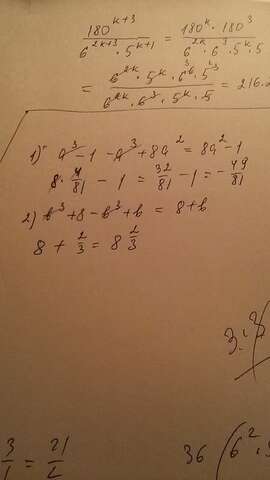 180^{k+3} / 6^{2k+3} · 5^{k+1} = 180^k · 180^3 / 6^{2k} · 6^3 · 5^k · 5
= 6^{2k} · 5^k · 6^6 · 5^3 / 6^{2k} · 6^3 · 5^k · 5 = 216.2
1) a^3 - 1 - a^3 + 8a^2 = 8a^2 - 1
8 · 4/81 - 1 = 32/81 - 1 = - 49/81
2) b^3 + 8 - b^3 + b = 8 + b
8 + 2/3 = 8 2/3
3 = 21
36 (6^2 ·